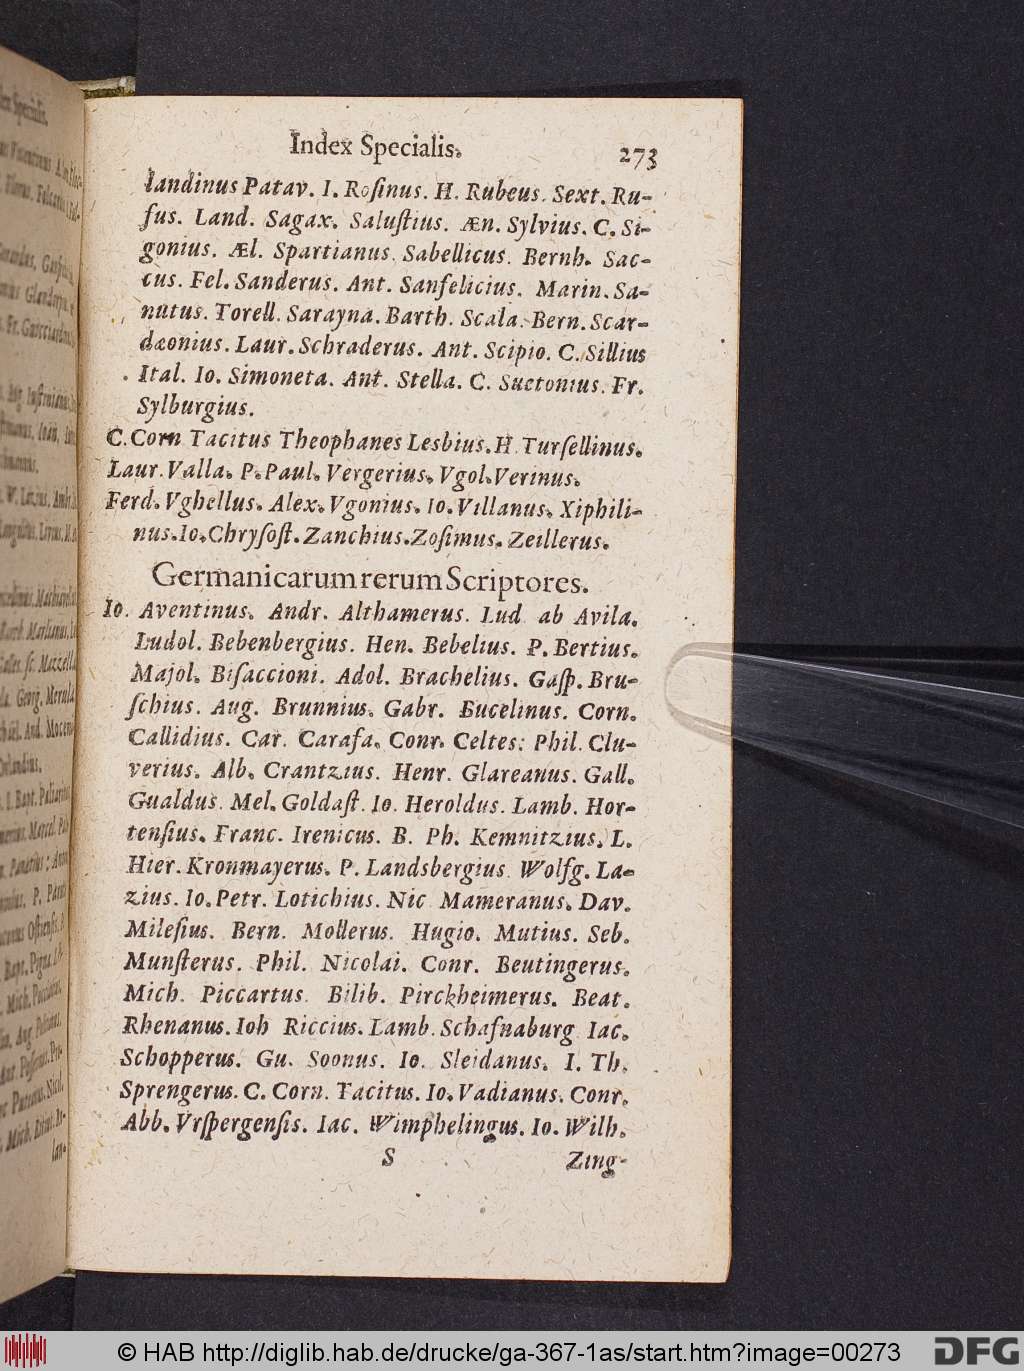 Index Specialis.
273
landinus Patav. I. Roſinus. H. Rubeus. Sext. Ru-
fus. Land. Sagax. Saluſtius. Æn. Sylvius. C. Si-
gonius. Æl. Spartianus. Sabellicus. Bernh. Sac-
cus. Fel. Sanderus. Ant. Sanfelicius. Marin. Sa-
nutus. Torell. Sarayna. Barth. Scala. Bern. Scar-
dæonius. Laur. Schraderus. Ant. Scipio. C. Sillius
Ital. Io. Simoneta. Ant. Stella. C. Suetonius. Fr.
Sylburgius.
C. Corn Tacitus Theophanes Lesbius. H. Turſellinus.
Laur. Valla. P. Paul. Vergerius. Vgol. Verinus.
Ferd. Vghellus. Alex. Vgonius. Io. Villanus. Xiphili-
nus. Io. Chryſoſt. Zanchius. Zoſimus. Zeillerus.
Germanicarum rerum Scriptores.
Io. Aventinus. Andr. Althamerus. Lud ab Avila.
Ludol. Bebenbergius. Hen. Bebelius. P. Bertius.
Majol. Biſaccioni. Adol. Brachelius. Gaſp. Bru-
ſchius. Aug. Brunnius. Gabr. Bucelinus. Corn.
Callidius. Car. Carafa. Conr. Celtes. Phil. Clu-
verius. Alb. Crantzius. Henr. Glareanus. Gall.
Gualdus. Mel. Goldaſt. Io. Heroldus. Lamb. Hor-
tenſius. Franc. Irenicus. B. Ph. Kemnitzius. L.
Hier. Kronmayerus. P. Landsbergius Wolfg. La-
zius. Io. Petr. Lotichius. Nic Mameranus. Dav.
Mileſius. Bern. Mollerus. Hugio. Mutius. Seb.
Munſterus. Phil. Nicolai. Conr. Beutingerus.
Mich. Piccartus. Bilib. Pirckheimerus. Beat.
Rhenanus. Ioh Riccius. Lamb. Schafnaburg Iac.
Schopperus. Gu. Soonus. Io. Sleidanus. I. Th.
Sprengerus. C. Corn. Tacitus. Io. Vadianus. Conr.
Abb. Vrſpergenſis. Iac. Wimphelingus. Io. Wilh.
S
Zing-
© HAB http://diglib.hab.de/drucke/ga-367-1as/start.htm?image=00273
DFG